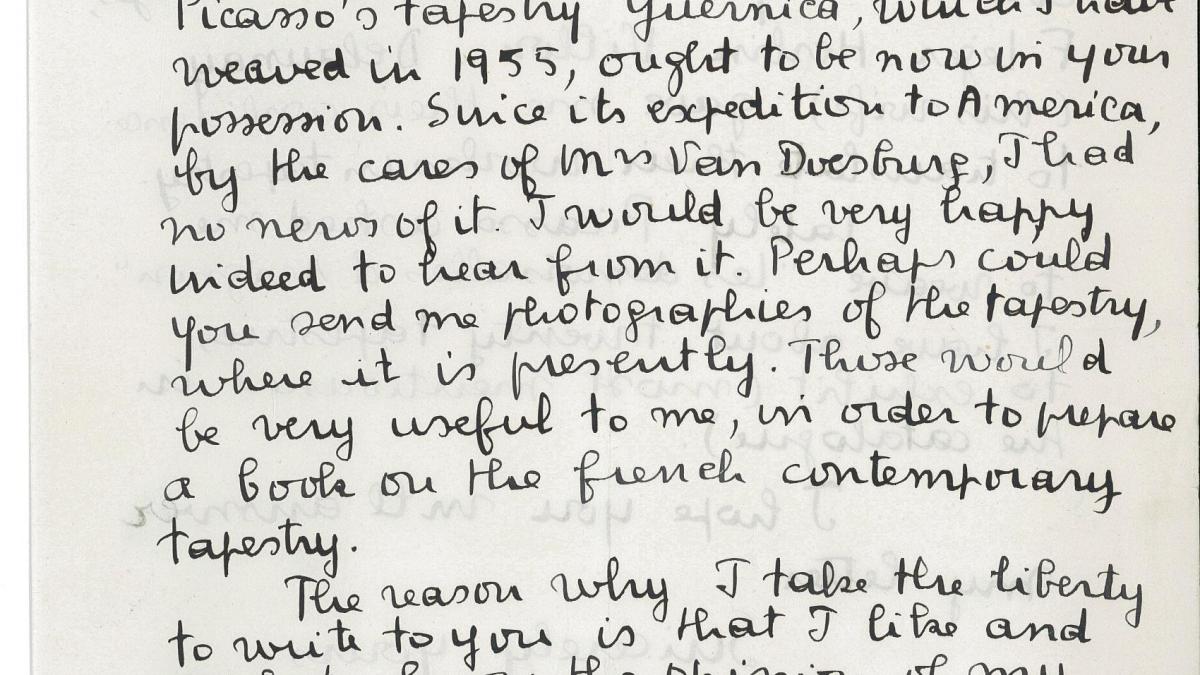 Picasso's tapestry Guernica, which I have
weaved in 1955, ought to be now in your
possession. Since its expedition to America,
by the cares of Mrs Van Doesburg, I had
no news of it. I would be very happy
indeed to hear from it. Perhaps could
you send me photographies of the tapestry,
where it is presently. Those would
be very useful to me, in order to prepare
a book on the french contemporary
tapestry.
The reason why I take the liberty
to write to you is that I like and
the opinion of my